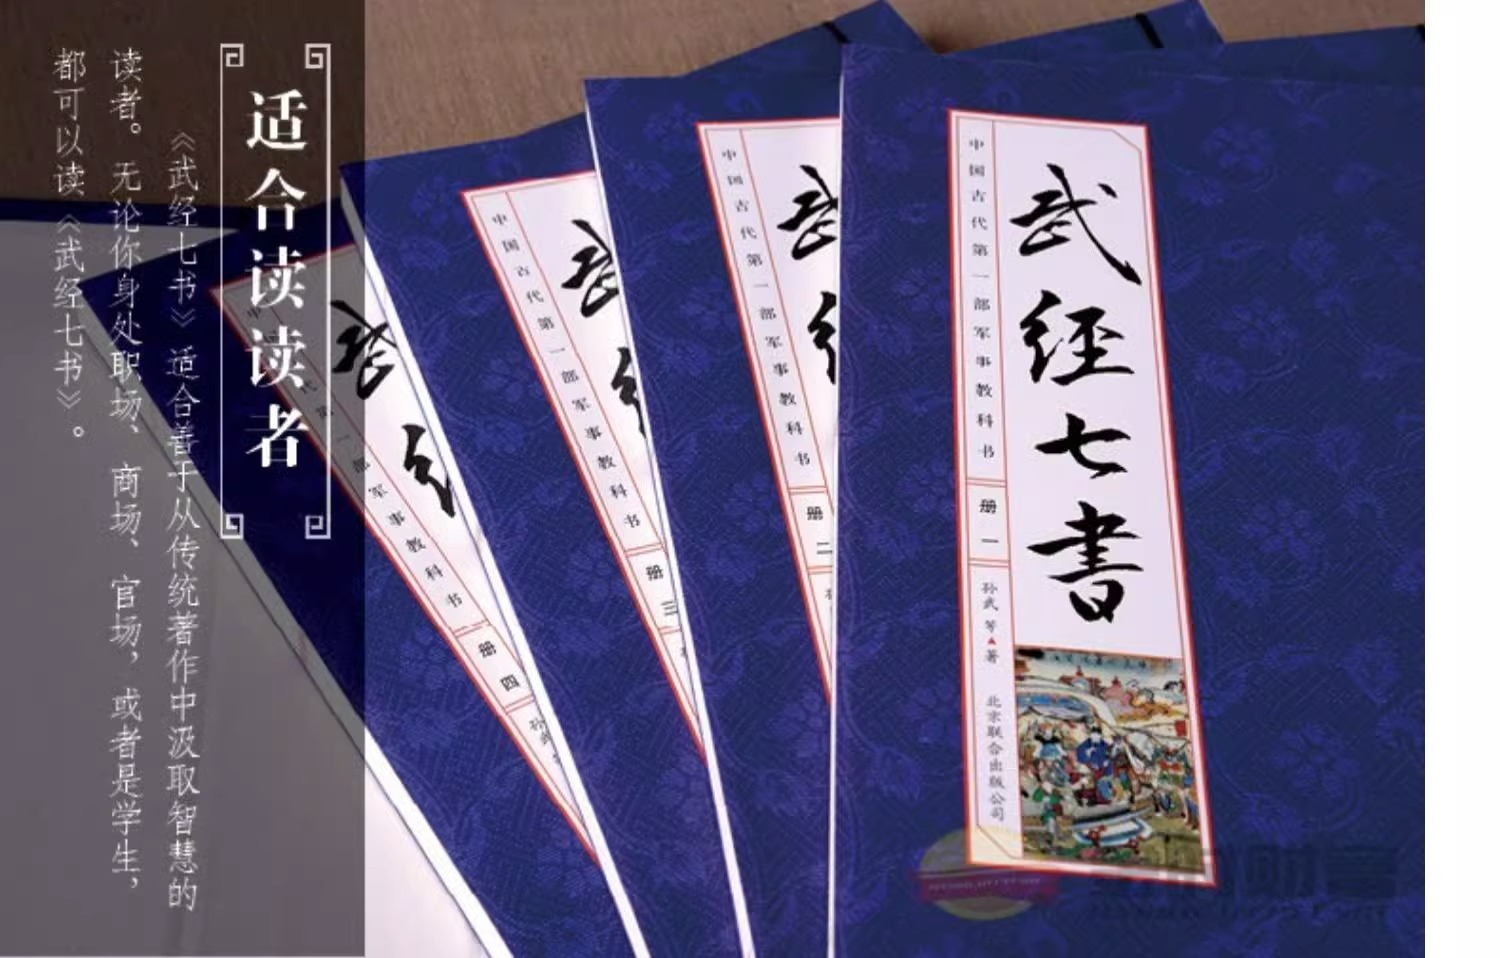 适合读者
《武经七书》适合善于从传统著作中汲取智慧的
读者。无论你身处职场、商场、官场，或者是学生，
都可以读《武经七书》。
中国古代第一部军事教科书
册四
孙武
武经
中国古代第一部军事教科书
册三
武
中国古代第一部军事教科书
册二
武
中国古代第一部军事教科书
册一
孙武 等▲著
北京联合出版公司
武經七書